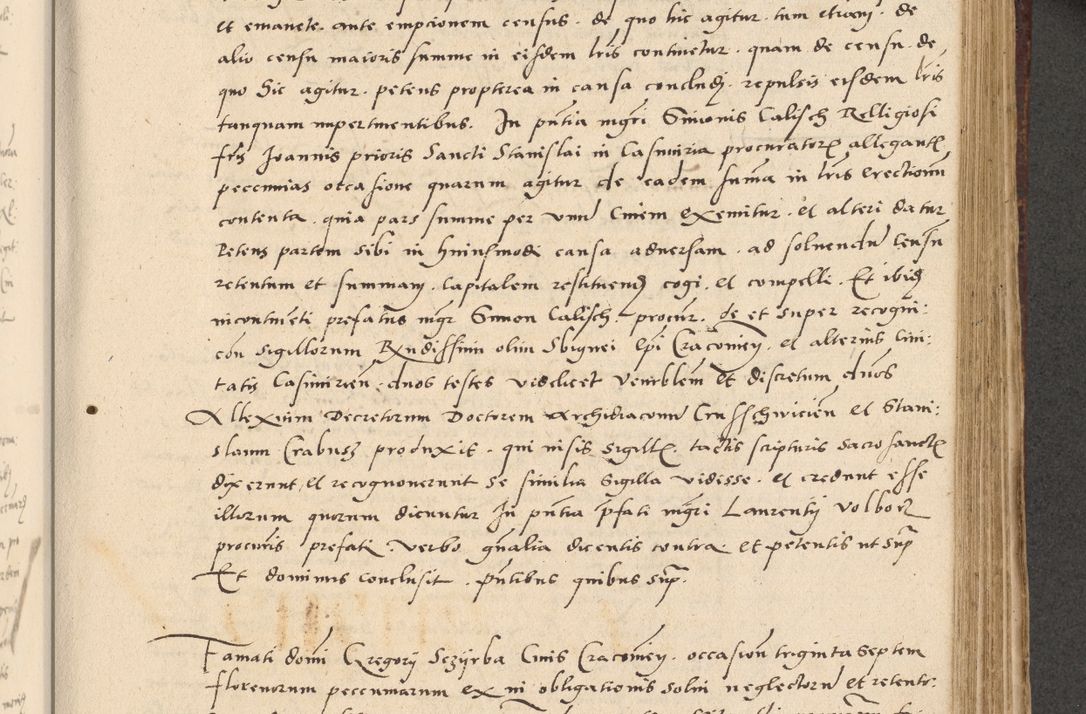 et emanete. ante empcionem census. de quo hic agitur. tum etiam. de
alio censu maioris summe in eisdem lris continetur. quam de censu. de
quo hic agitur. petens propterea in causa concludj. repulsis eisdem lris
tanquam impertinentibus. In pntia mgri Simonis Calisch Relligiosi
fris Joannis prioris Sancti Stanislai in Casimiria procuratoris allegantis
peccunias occasione quarum agitur de eadem summa in lris Erectionum
contenta. quia pars summe per unum Ciuem exemitur. et alteri datur
Petens partem sibi in huiusmodi causa aduersam. ad soluendum Censum
retentum et summam. Capitalem restituendam cogi. et compelli. Et ibidem
incontineti prefatus mgr Simon Calisch. procur. de et super recogni:
con sigillorum Rndissimi olim Sbignei Epi Cracouien. et alterius Ciui:
tatis Casimirien. duos testes videlicet venerblem et discretum duos
Alexium Decretorum Doctorem Archidiaconum Cruschwicien et Stani:
slaum Crabusz produxit. qui visis sigillis. tactis scripturis sacrosanctis
dixerunt, et recognouerunt se similia sigilla vidisse. et credunt esse
illorum quorum dicuntur In pntia pfati mgri Laurentij Volborz
procuris prefati. verbo gnalia dicentis contra. et petentis ut supra
Et dominus conclusit. pntibus quibus supra.
Famati domi Gregorij Sczyrba Ciuis Cracouien. occasion triginta septem
florenorum peccuniarum ex vi obligationis solui neglectorum et retento: